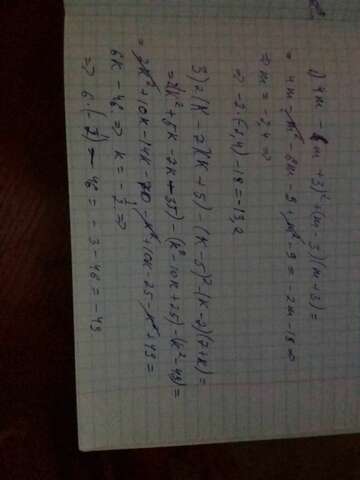 1) 4m - (m + 3)² + (m - 3)(m + 3) =
= 4m - m² - 6m - 9 + m² - 9 = -2m - 18 ⇒
⇒ m = -2,4 ⇒
⇒ -2·(-2,4) - 18 = -13,2
3) 2(k - 7)(k + 5) - (k - 5)² - (k - 7)(7 + k) =
= 2(k² + 5k - 7k - 35) - (k² - 10k + 25) - (k² - 49) =
= 2k² + 10k - 14k - 70 - k² + 10k - 25 - k² + 49 =
6k - 46 ⇒ k = -1/2 ⇒
⇒ 6·(-1/2) - 46 = -3 - 46 = -49